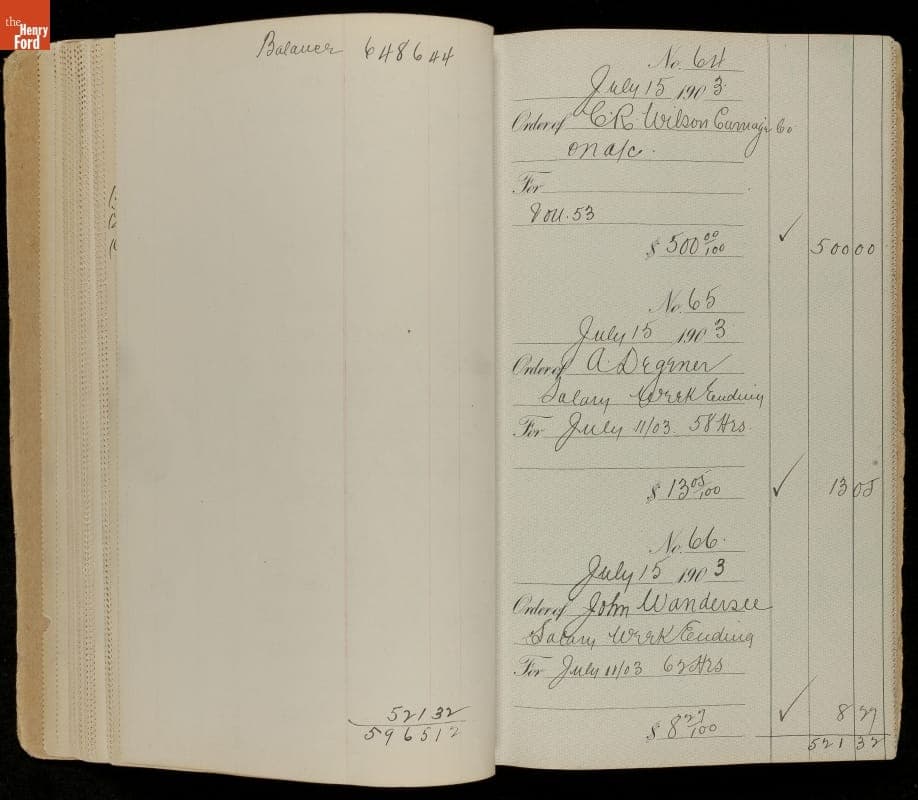 the
Henry
Ford
Balance 6486 44
521 32
5965 12
No. 64
July 15 1903
Order of C.R. Wilson Carriage Co
on a/c.
For
Vou. 53
$ 500 00/100
✓ 500 00
No. 65
July 15 1903
Order of A Degener
Salary Week Ending
For July 11/03 58 Hrs.
$ 13 05/100
✓ 13 05
No. 66.
July 15 1903
Order of John Wandersee
Salary Week Ending
For July 11/03 62 Hrs
$ 8 27/100
✓ 8 27
521 32